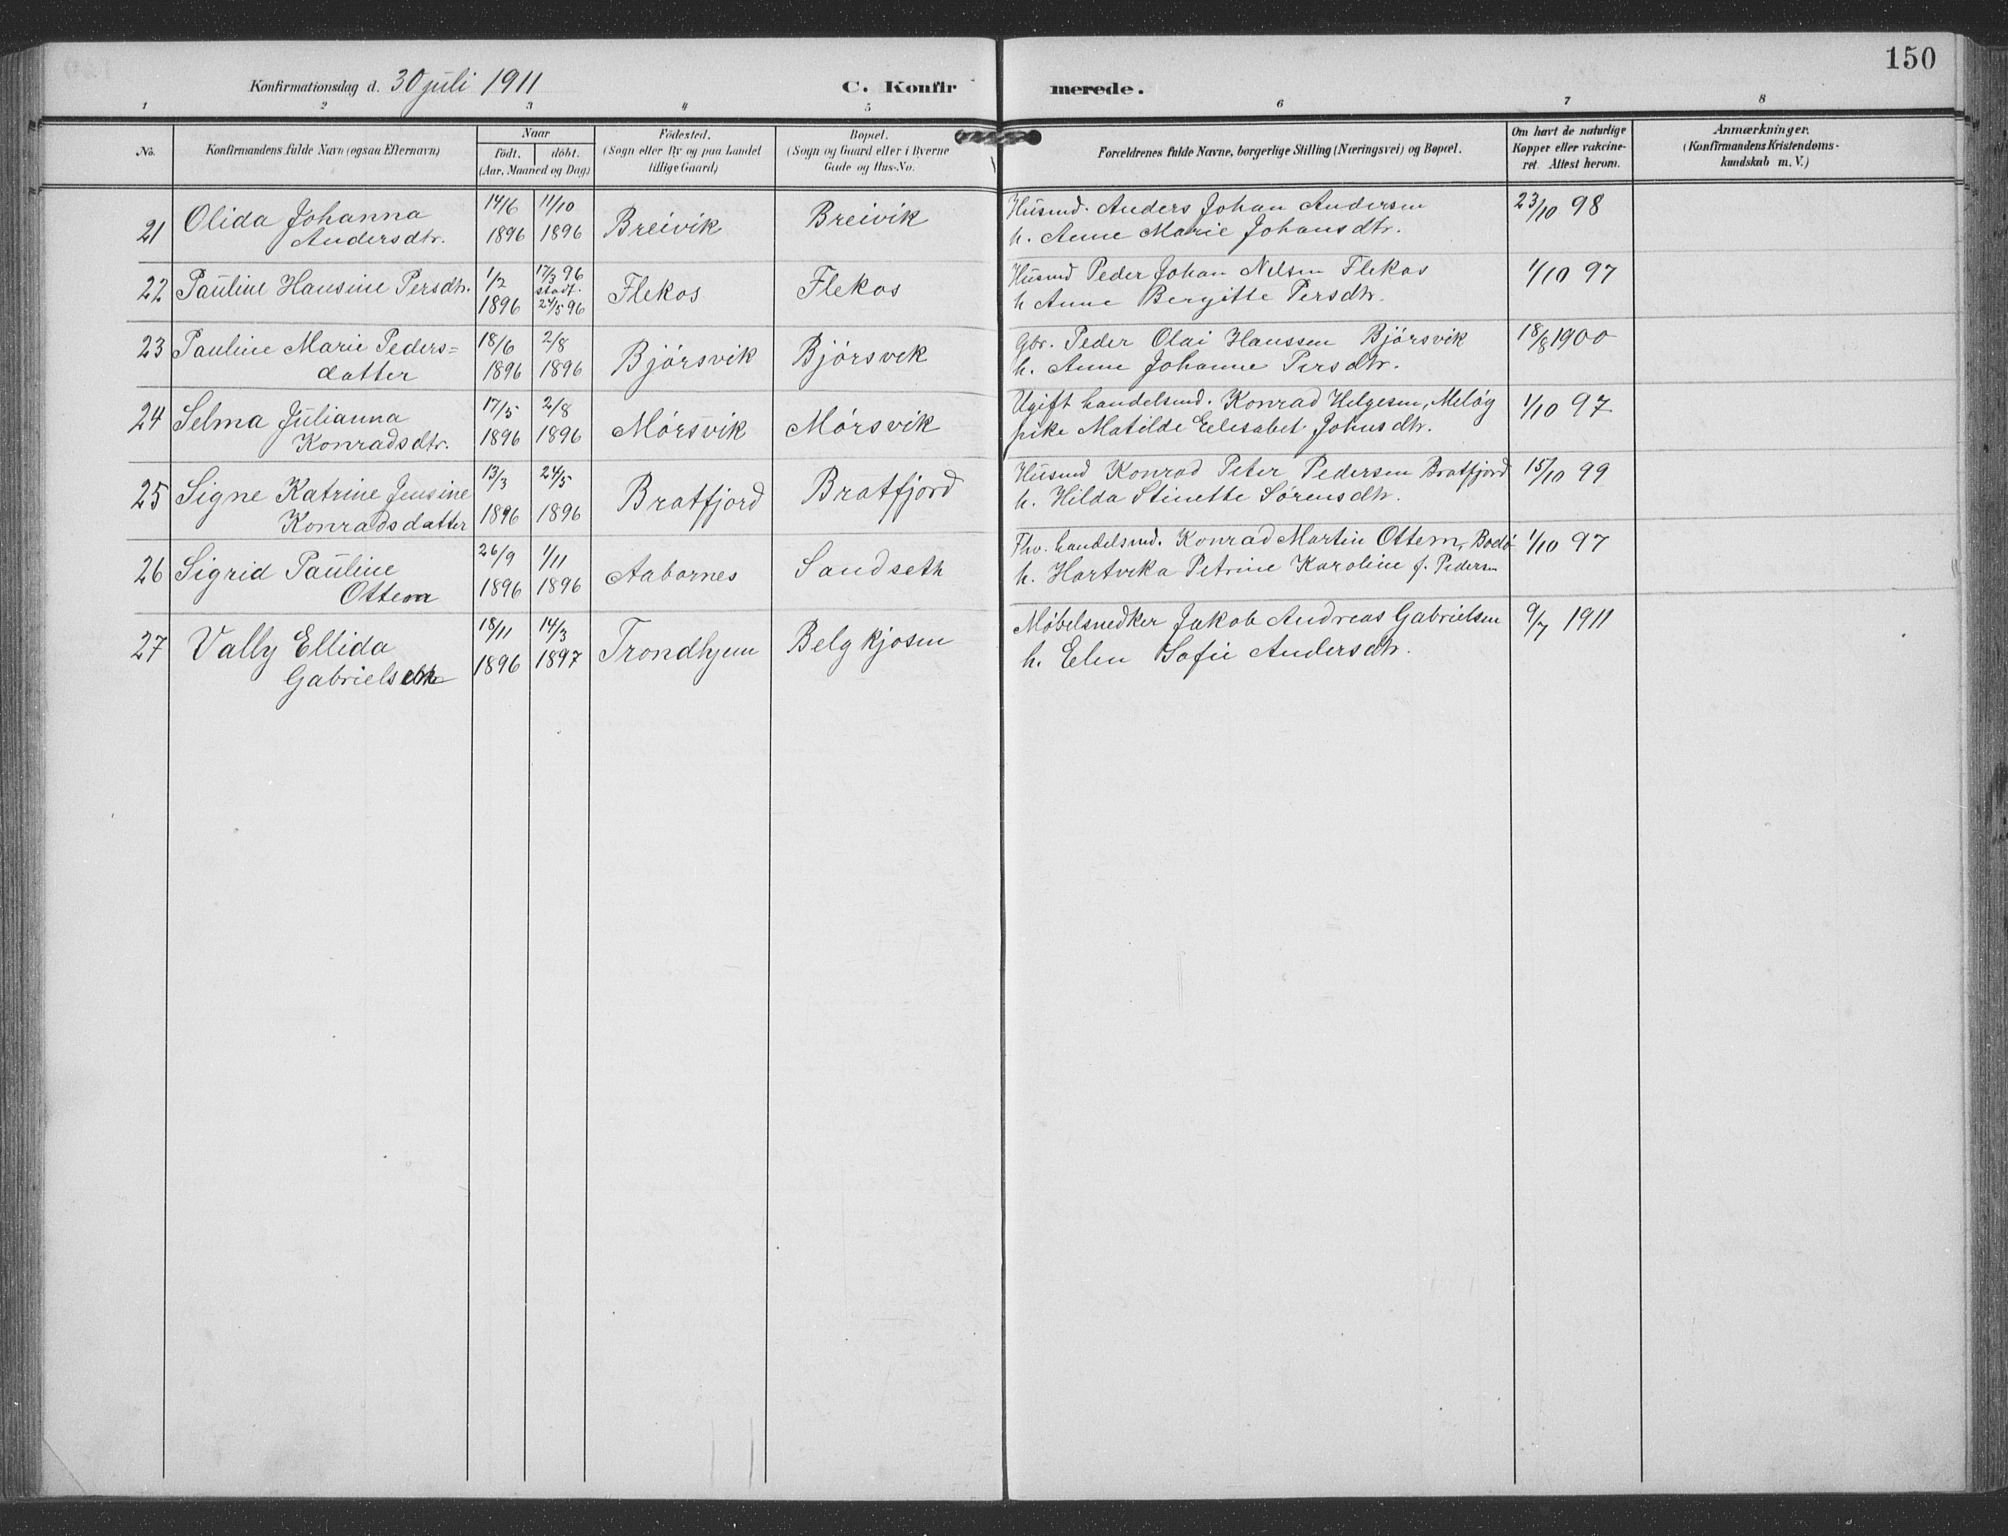 150
Konfirmationsdag d. 30 juli 1911
C. Konfir merede.
1 2 3 4 5 6 7 8
No.
Konfirmandens fulde Navn (ogsaa Efternavn)
Naar
født. døbt.
(Aar, Maaned og Dag)
Fødested.
(Sogn eller By og paa Landet
tillige Gaard)
Bopæl.
(Sogn og Gaard eller i Byerne
Gade og Hus-No.
Forældrenes fulde Navne, borgerlige Stilling (Næringsvei) og Bopæl.
Om havt de naturlige
Kopper eller vakcine-
ret. Attest herom.
Anmærkninger.
(Konfirmandens Kristendoms-
kundskab m. V.)
21 Olida Johanna
Andersdtr.
14/6 1896
11/10 1896
Breivik
Breivik
Husmd. Anders Johan Andersen
h. Anne Marie Johansdtr.
23/10 98
22 Pauline Hansine Persdtr.
1/2 1896
17/3 96
stadf.
24/5 96
Flekos
Flekos
Husmd Peder Johan Nilsen Flekos
h Anne Bergitte Persdtr.
1/10 97
23 Pauline Marie Peders=
datter
18/6 1896
2/8 1896
Bjørsvik
Bjørsvik
gbr. Peder Olai Hanssen Bjørsvik
h. Anne Johanne Persdtr.
18/8 1900
24 Selma Julianna
Konradsdtr.
17/5 1896
2/8 1896
Mørsvik
Mørsvik
Ugift handelsmd. Konrad Helgesen, Meløy
pike Matilde Eelisabet Johnsdtr.
1/10 97
25 Signe Katrine Jensine
Konradsdatter
13/3 1896
24/5 1896
Bratfjord
Bratfjord
Husmd Konrad Peter Pedersen Bratfjord
h. Hilda Stinette Sørensdtr.
15/10 99
26 Sigrid Pauline
Ottem
26/9 1896
1/11 1896
Aabornes
Sandseth
Fhv. handelsmd. Konrad Martin Ottem, Bodø
h. Hartvika Petrine Karoline f. Pedersen
1/10 97
27 Vally Ellida
18/11 1896
14/3 1897
Trondhjem
Belgkjosen
Møbelsnedker Jakob Andreas Gabrielsen
h. Elen Sofie Andersdtr.
9/7 1911